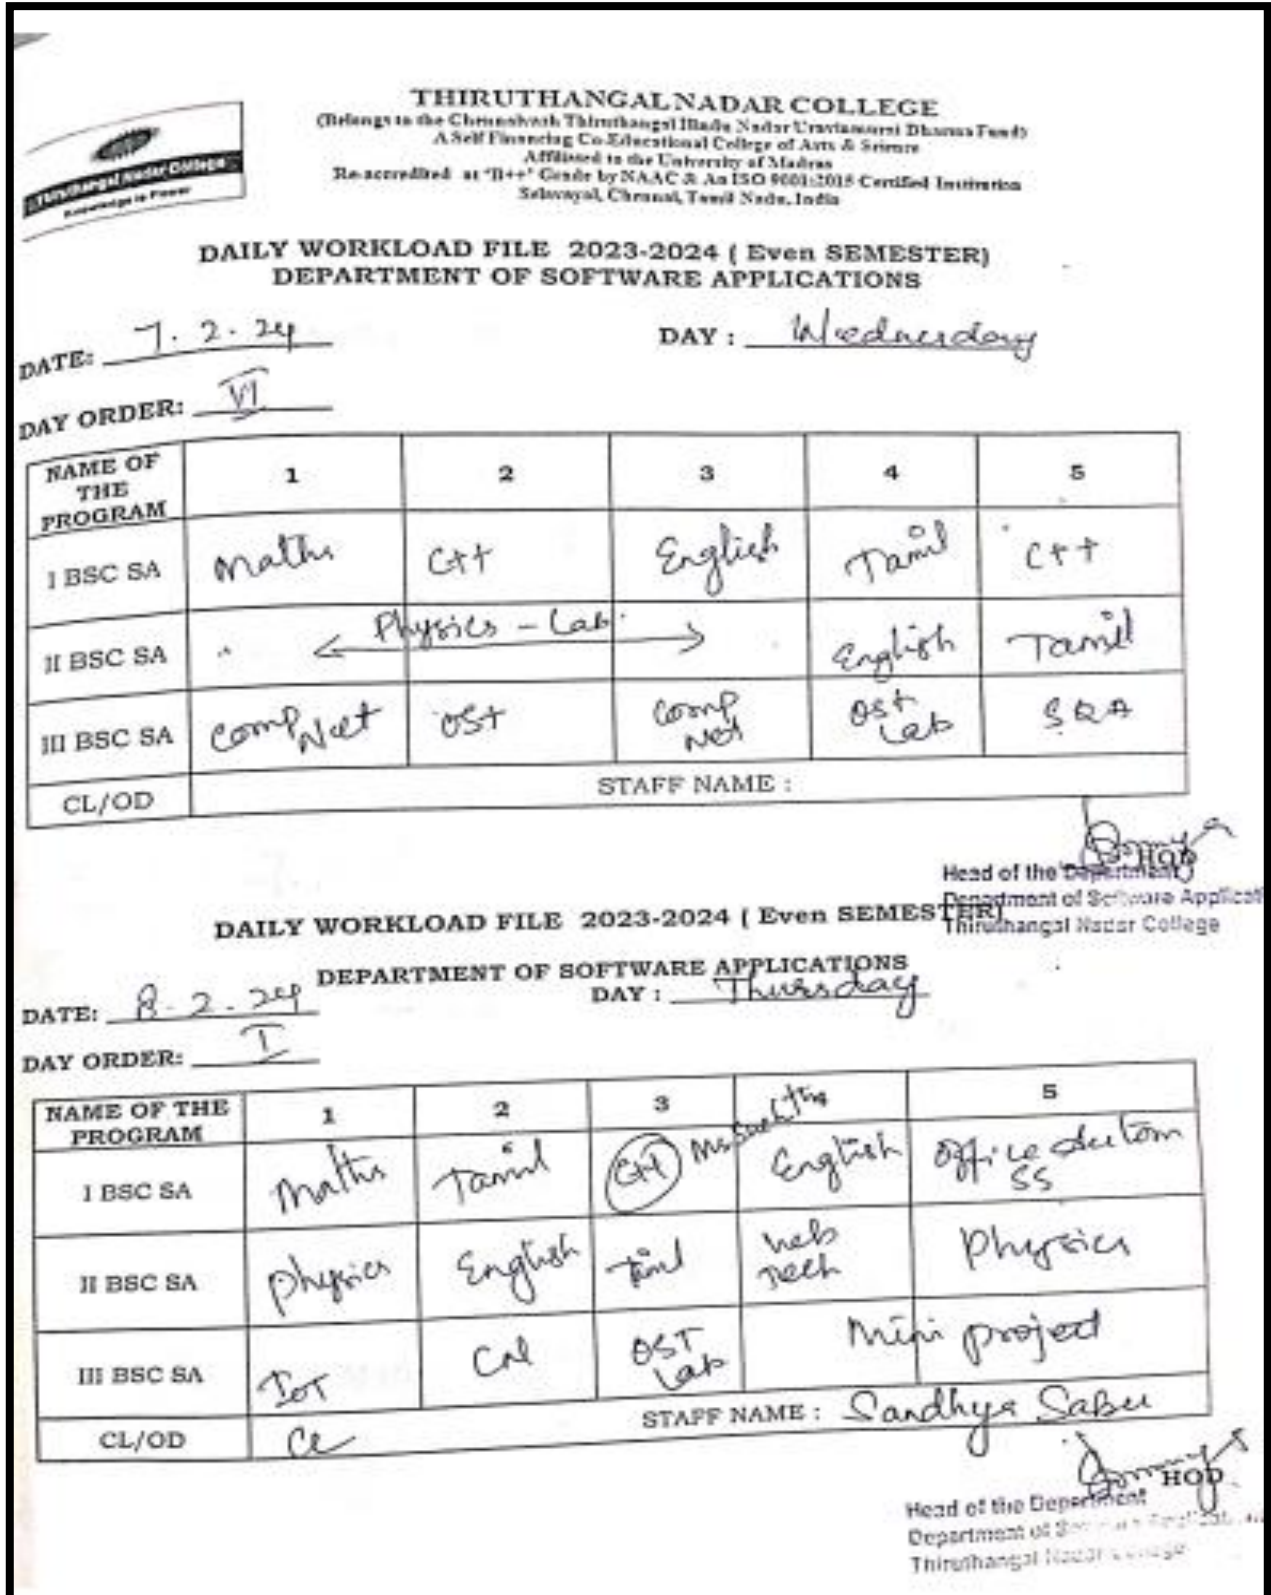 Thiruthangal Nadar College
Knowledge is Power
THIRUTHANGAL NADAR COLLEGE
(Belongs to the Chennaivazh Thiruthangal Hindu Nadar Uravinmurai Dharma Fund)
A Self Financing Co-Educational College of Arts & Science
Affiliated to the University of Madras
Re-accredited at "B++" Grade by NAAC & An ISO 9001:2015 Certified Institution
Selavayal, Chennai, Tamil Nadu, India
DAILY WORKLOAD FILE 2023-2024 ( Even SEMESTER)
DEPARTMENT OF SOFTWARE APPLICATIONS
DATE: 7.2.24 DAY : Wednesday
DAY ORDER: VI
NAME OF THE PROGRAM 1 2 3 4 5
I BSC SA Maths C++ English Tamil C++
II BSC SA Physics - Lab English Tamil
III BSC SA Comp Net OST Comp Net OST Lab SQA
CL/OD STAFF NAME :
HOD
Head of the Department
Department of Software Applicat
Thiruthangal Nadar College
DAILY WORKLOAD FILE 2023-2024 ( Even SEMESTER)
DEPARTMENT OF SOFTWARE APPLICATIONS
DATE: 8.2.24 DAY : Thursday
DAY ORDER: I
NAME OF THE PROGRAM 1 2 3 5
I BSC SA Maths Tamil C++ English Office Autom SS
II BSC SA Physics English Tamil Web Tech Physics
III BSC SA IOT CN OST Lab Mini project
CL/OD CL STAFF NAME : Sandhya Sabu
HOD
Head of the Department
Department of
Thiruthangal Nadar College